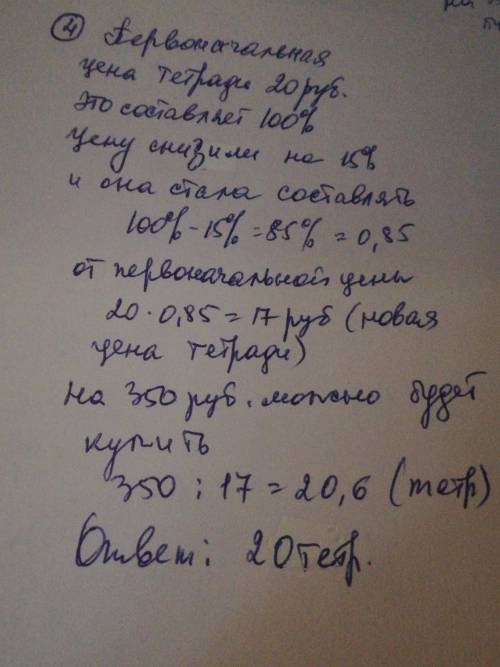 ④ Первоначальная
цена тетради 20 руб.
Это составляет 100%
Цену снизили на 15%
и она стала составлять
100% - 15% = 85% = 0,85
от первоначальной цены
20 · 0,85 = 17 руб (новая
цена тетради)
На 350 руб. можно будет
купить
350 : 17 = 20,6 (тетр)
Ответ: 20 тетр.